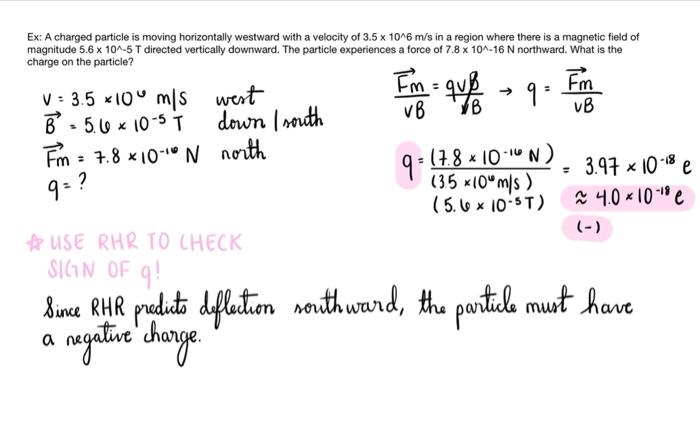 Ex: A charged particle is moving horizontally westward with a velocity of 3.5 x 10^6 m/s in a region where there is a magnetic field of
magnitude 5.6 x 10^-5 T directed vertically downward. The particle experiences a force of 7.8 x 10^-16 N northward. What is the
charge on the particle?
V = 3.5 × 10⁶ m/s west
B⃗ = 5.6 × 10⁻⁵ T down / south
F⃗m = 7.8 × 10⁻¹⁶ N north
q = ?
F⃗m/vB = qvB/vB → q = F⃗m/vB
q = (7.8 × 10⁻¹⁶ N) = 3.97 × 10⁻¹⁸ e
(3.5 × 10⁶ m/s)
(5.6 × 10⁻⁵ T) ≈ 4.0 × 10⁻¹⁸ e
(-)
☆ USE RHR TO CHECK
SIGN OF q!
Since RHR predicts deflection southward, the particle must have
a negative charge.